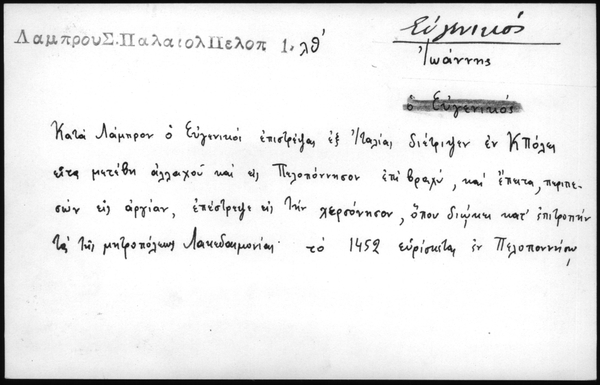 Εὐγενικός
ΛαμπρουΣ.ΠαλαιολΠελοπ 1.λθ'
Ἰωάννης
ὁ Εὐγενικός
Κατὰ Λάμπρον ὁ Εὐγενικὸς ἐπιστρέψας ἐξ Ἰταλίας διέτριψεν ἐν ΚΠόλει
εἶτα μετέβη ἀλλαχοῦ καὶ εἰς Πελοπόννησον ἐπὶ βραχύ, καὶ ἔπειτα, περιπε-
σὼν εἰς ἀργίαν, ἐπέστρεψε εἰς τὴν χερσόνησον, ὅπου διῴκει κατ' ἐπιτροπὴν
τὰ τῆς μητροπόλεως Λακεδαιμονίας. τὸ 1452 εὑρίσκεται ἐν Πελοποννήσῳ